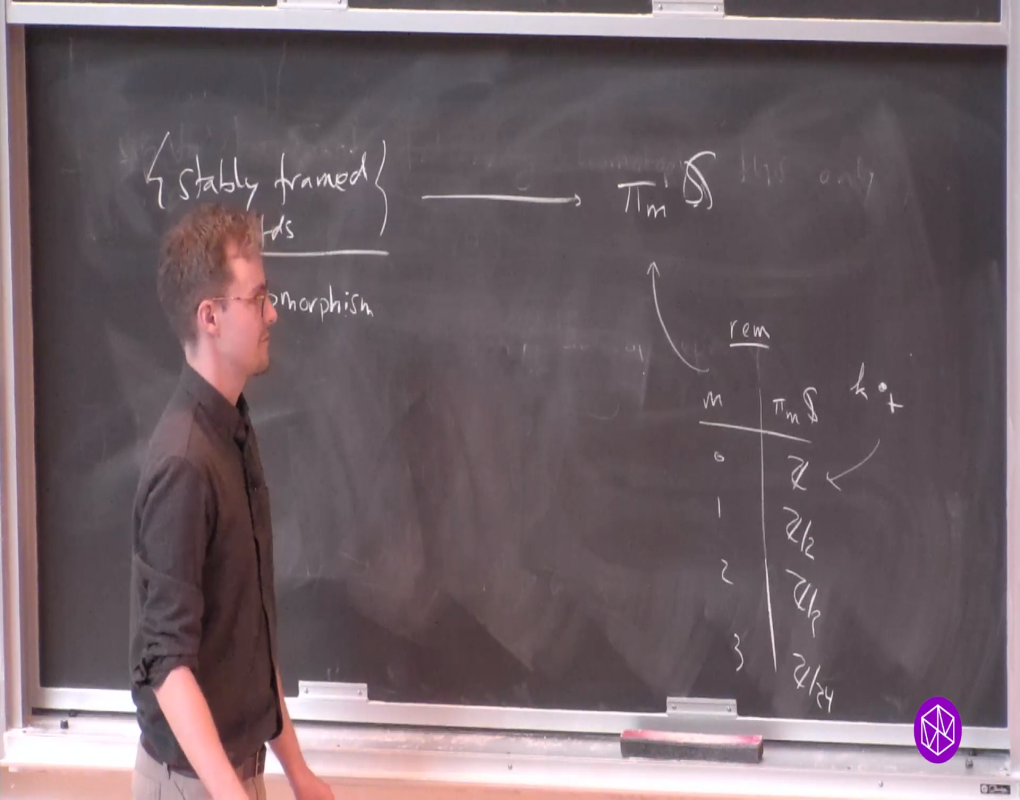 {stably framed} → π_m 𝕊
ds
omorphism
rem
m | π_m 𝕊
k •_+
0 | ℤ
1 | ℤ/2
2 | ℤ/2
3 | ℤ/24